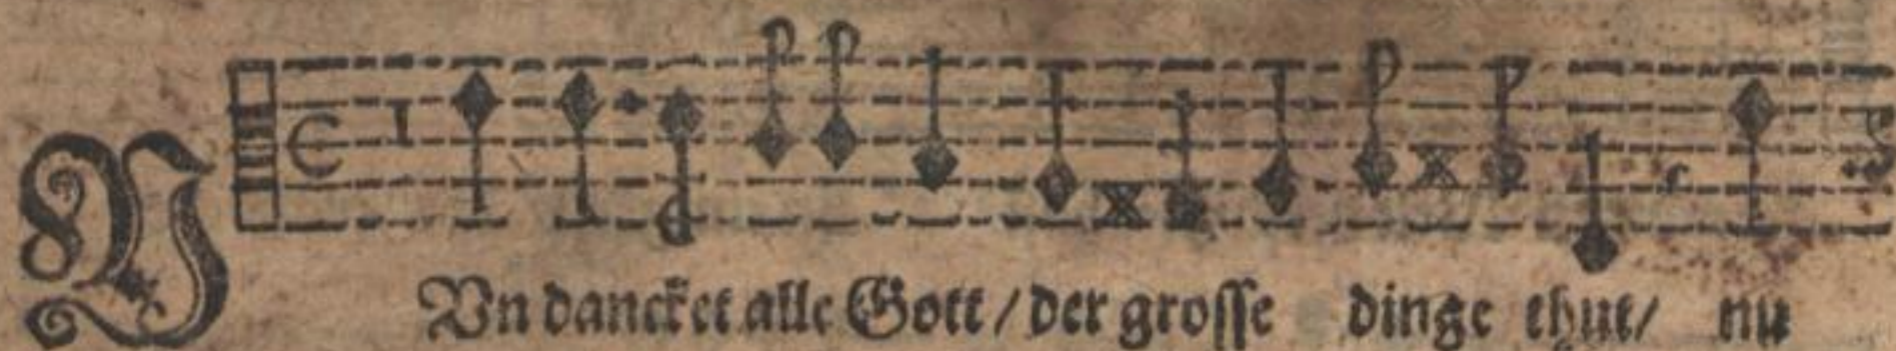 NVn dancket alle Gott / der grosse dinge thut / nu